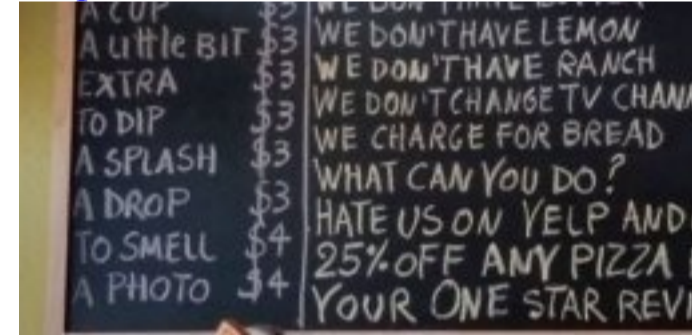 A CUP $3
A LittLe BiT $3
EXTRA $3
TO DIP $3
A SPLASH $3
A DROP $3
TO SMELL $4
A PHOTO $4
WE DON'T HAVE
WE DON'T HAVE LEMON
WE DON'T HAVE RANCH
WE DON'T CHANGE TV CHAN
WE CHARGE FOR BREAD
WHAT CAN YOU DO?
HATE US ON YELP AND
25% OFF ANY PIZZA
YOUR ONE STAR REVI